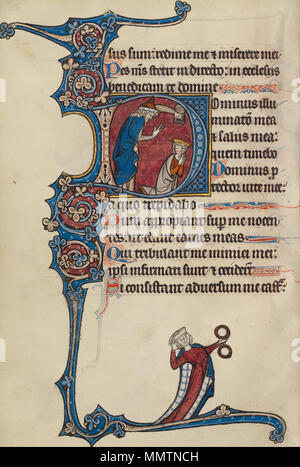 sus sum: redime me ⁊ miserere mei
Pes m̄s stetit in directo: in ecclesiis
benedicam te domine
Dominus illu
minatō mea
⁊ salus mea:
quem timebo
Dominus p
tector vite mee:
a quo trepidabo
Dum appropiant sup me nocen
tes: ut edant carnes meas
Qui tribulant me inimici mei:
ipsi infirmati sunt ⁊ cecider
Si consistant adversum me cast
alamy
www.alamy.com - MMTNCH